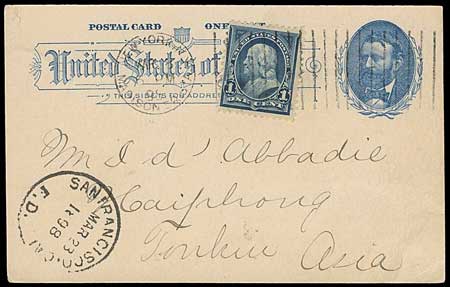 POSTAL CARD ONE
United States of
THIS SIDE IS FOR ADDRESS
NEW YORK, N.Y.
1 ONE CENT 1
M I d' Abbadie
Haiphong
Tonkin Asia
SAN FRANCISCO, CAL
MAR 23
98
F.D.